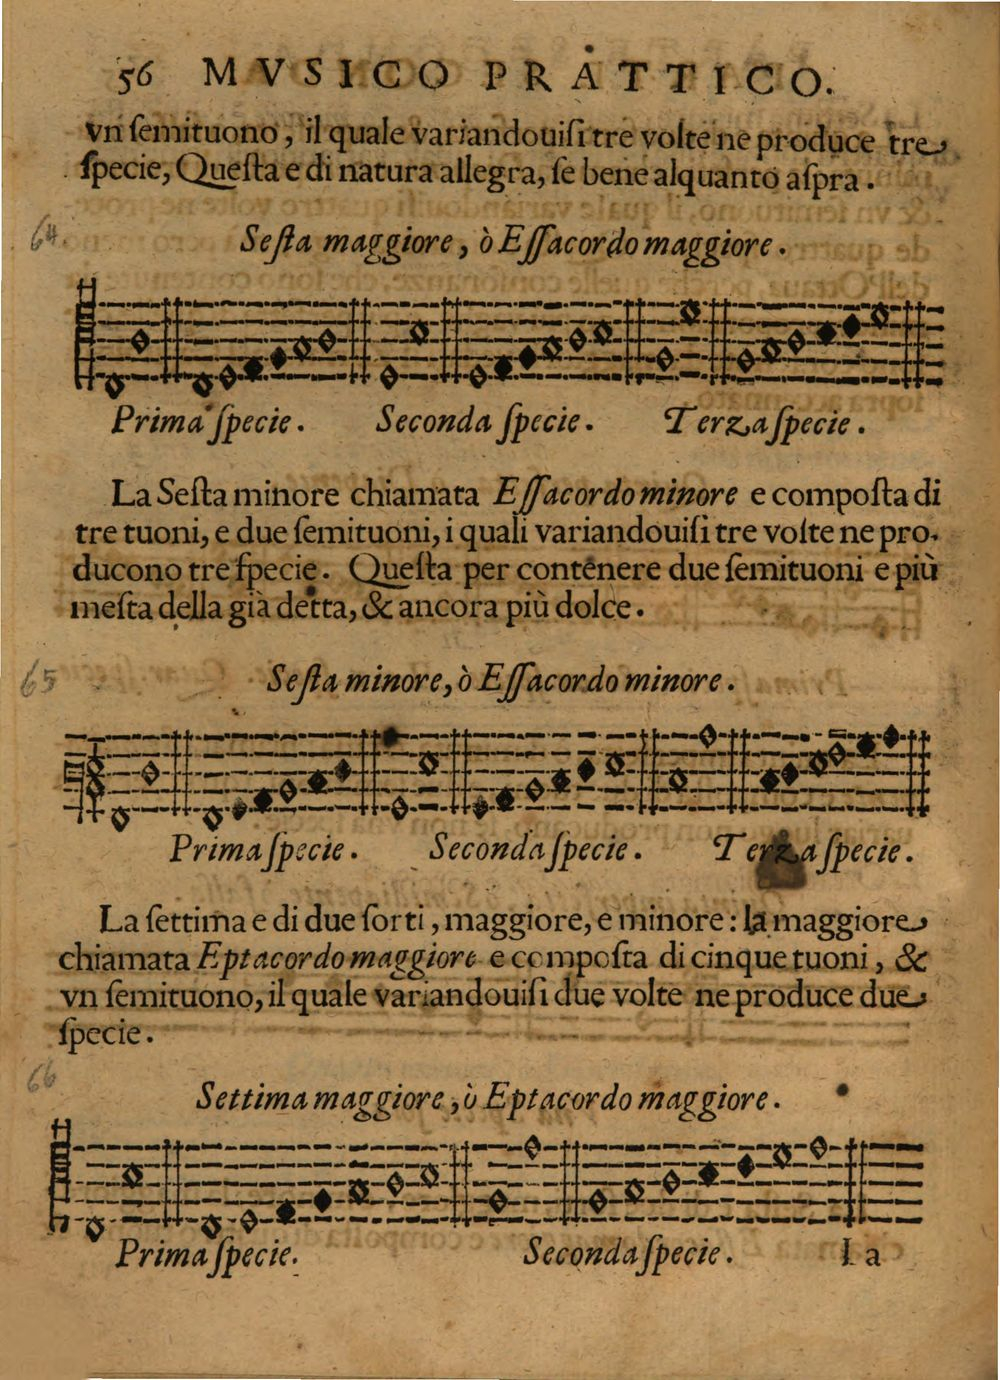 56 MVSICO PRATTICO.
vn ſemituono, il quale variandouiſi tre volte ne produce tre
ſpecie, Queſta e di natura allegra, ſe bene alquanto aſpra.
64 Seſta maggiore, ò Eſſacordo maggiore.
Prima ſpecie. Seconda ſpecie. Terza ſpecie.
La Seſta minore chiamata Eſſacordo minore e compoſta di
tre tuoni, e due ſemituoni, i quali variandouiſi tre volte ne pro-
ducono tre ſpecie. Queſta per contenere due ſemituoni e più
meſta della già detta, & ancora più dolce.
65 Seſta minore, ò Eſſacordo minore.
Prima ſpecie. Seconda ſpecie. Terza ſpecie.
La ſettima e di due ſorti, maggiore, e minore: la maggiore
chiamata Eptacordo maggiore e compoſta di cinque tuoni, &
vn ſemituono, il quale variandouiſi due volte ne produce due
ſpecie.
66 Settima maggiore, ò Eptacordo maggiore.
Prima ſpecie. Seconda ſpecie. La